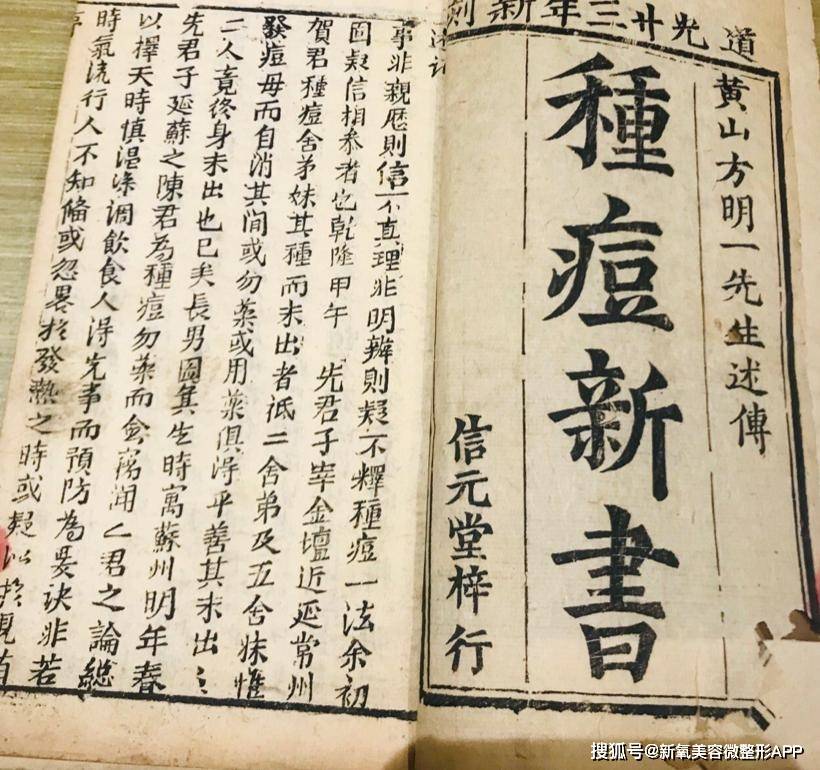 道光廿三年新刻
黄山方明一先生述傳
種痘新書
信元堂梓行
事非親歷則信不真理非明辨則疑不釋種痘一法余初
因疑信相參者也乾隆甲午 先君子宰金壇近延常州
賀君種痘舍弟妹其種而未出者祗二舍弟及五舍妹惟
發痘母而自消其间或勿藥或用藥俱得平善其未出之
二人竟終身未出也已矣長男圓其生時寓蘇州明年春
先君子延蘇之陳君為種痘勿藥而愈竊闻乙君之論總
以擇天時慎温涼调飲食人得先事而預防為要訣非若
時氣流行人不知備或忽畧於發熱之時或疑似於現苗
搜狐号@新氧美容微整形APP